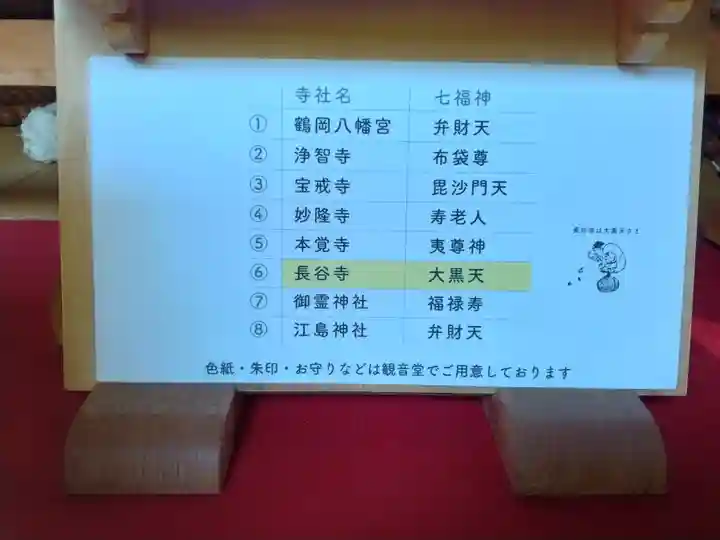 寺社名 七福神
① 鶴岡八幡宮 弁財天
② 浄智寺 布袋尊
③ 宝戒寺 毘沙門天
④ 妙隆寺 寿老人
⑤ 本覚寺 夷尊神
⑥ 長谷寺 大黒天
⑦ 御霊神社 福禄寿
⑧ 江島神社 弁財天
長谷寺は大黒天さま
色紙・朱印・お守りなどは観音堂でご用意しております